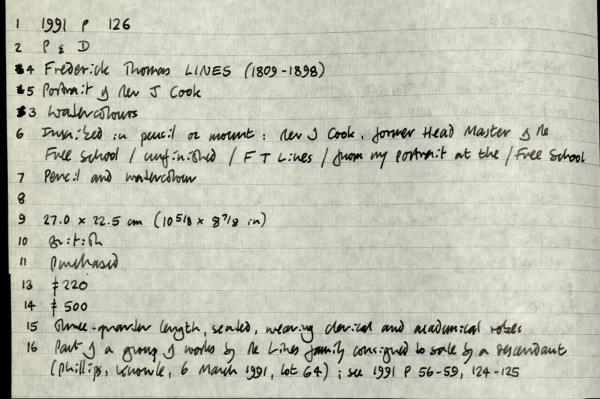 1 1991 P 126
2 P & D
4 Frederick Thomas LINES (1809-1898)
5 Portrait of Rev J Cook
3 Watercolours
6 Inscribed in pencil on mount: Rev J Cook, former Head Master of the
Free School / unfinished / F T Lines / from my portrait at the / Free School
7 Pencil and watercolour
8
9 27.0 x 22.5 cm (10 5/8 x 8 7/8 in)
10 British
11 Purchased
13 £220
14 £500
15 Three-quarter length, seated, wearing clerical and academical robes
16 Part of a group of works by the Lines family consigned to sale by a descendant
(Phillips, Knowle, 6 March 1991, lot 64); see 1991 P 56-59, 124-125